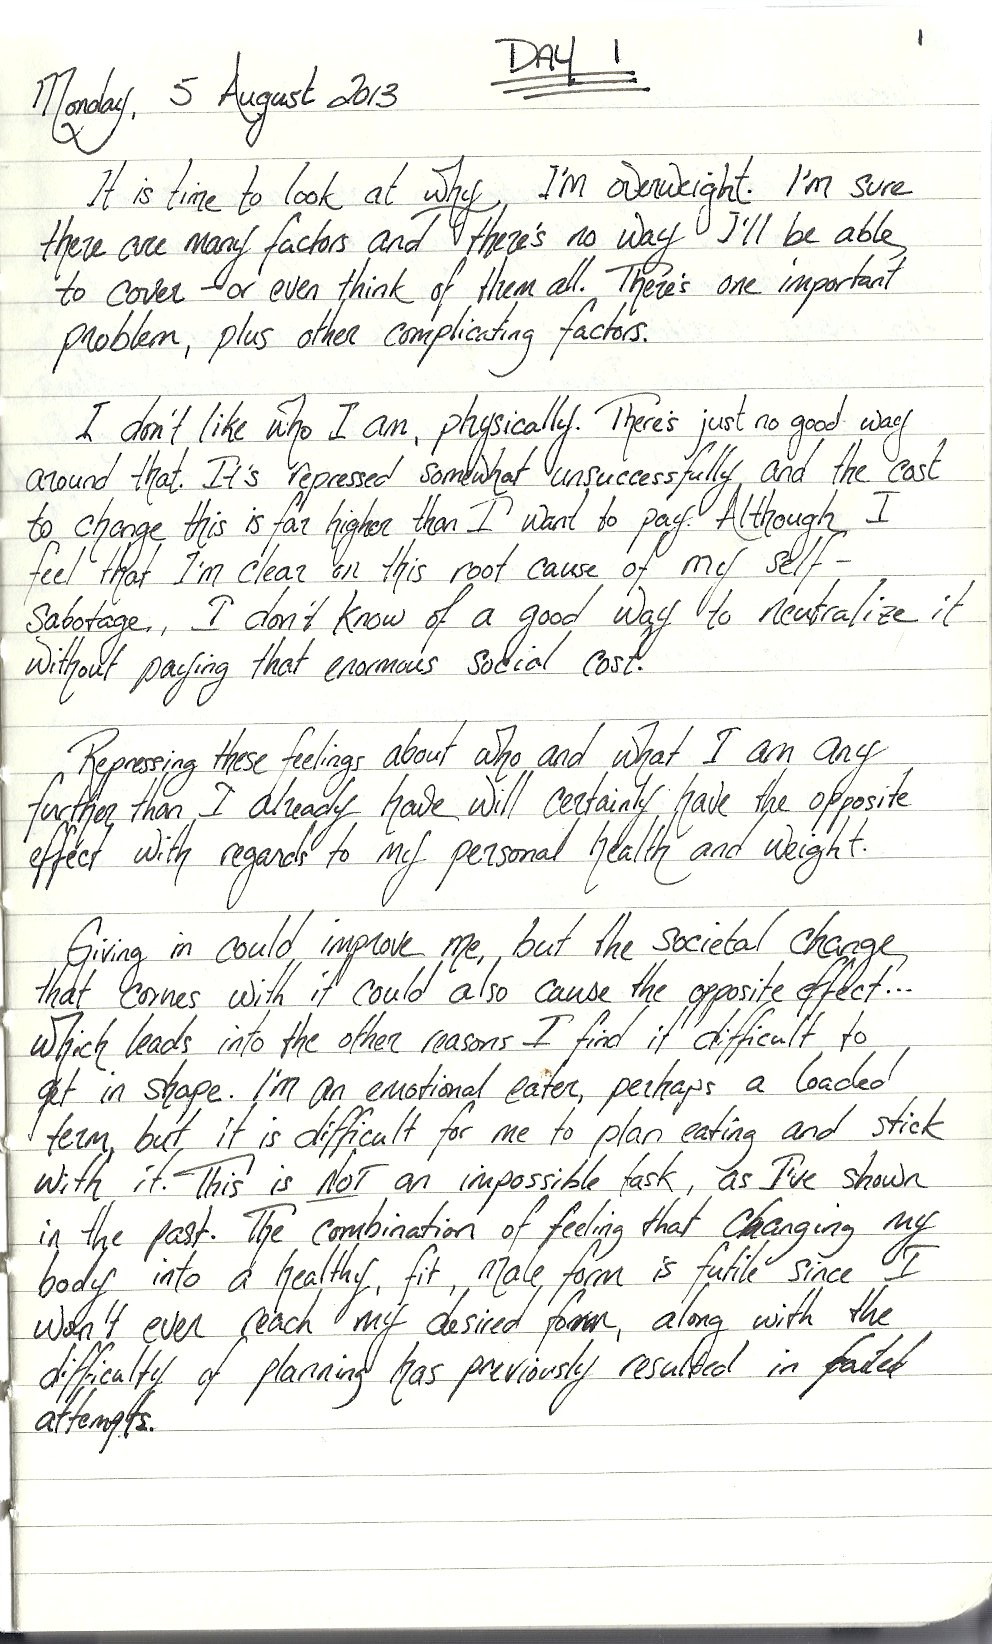 DAY 1
1
Monday, 5 August 2013
It is time to look at why I'm overweight. I'm sure
there are many factors and there's no way I'll be able
to cover - or even think of them all. There's one important
problem, plus other complicating factors.
I don't like who I am, physically. There's just no good way
around that. It's repressed somewhat unsuccessfully and the cost
to change this is far higher than I want to pay. Although I
feel that I'm clear on this root cause of my self-
sabotage, I don't know of a good way to neutralize it
without paying that enormous social cost.
Repressing these feelings about who and what I am any
further than I already have will certainly have the opposite
effect with regards to my personal health and weight.
Giving in could improve me, but the societal change
that comes with it could also cause the opposite effect...
which leads into the other reasons I find it difficult to
get in shape. I'm an emotional eater, perhaps a loaded
term, but it is difficult for me to plan eating and stick
with it. This is NOT an impossible task, as I've shown
in the past. The combination of feeling that changing my
body into a healthy, fit, male form is futile since I
won't ever reach my desired form, along with the
difficulty of planning has previously resulted in failed
attempts.